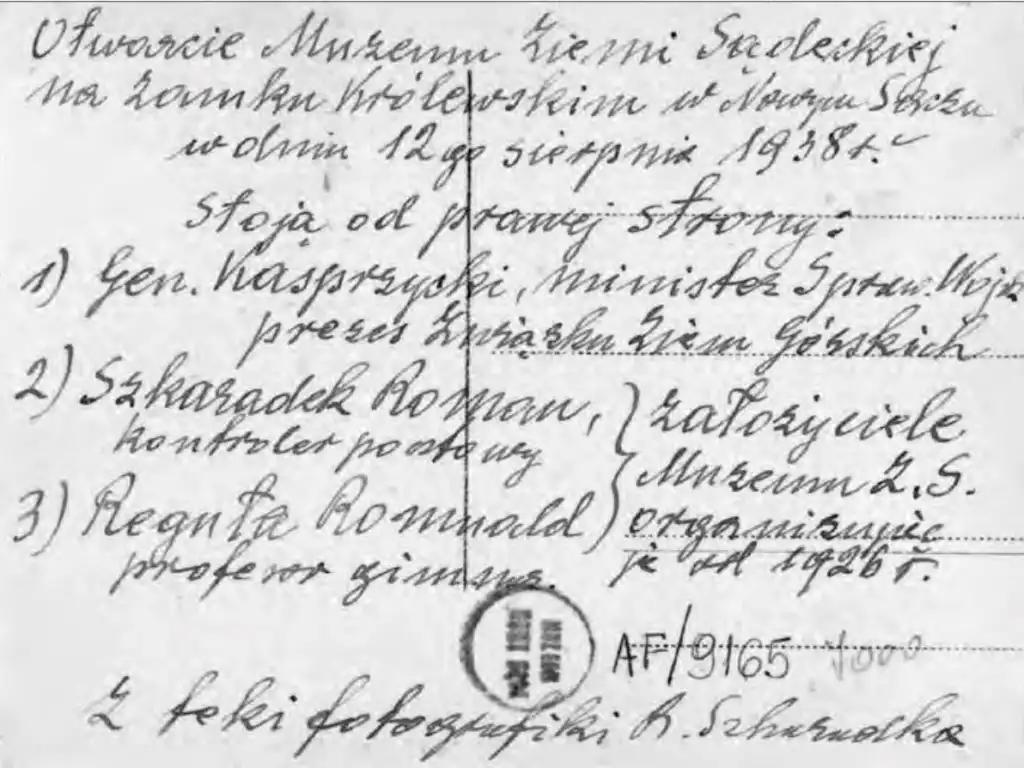 Otwarcie Muzeum Ziemi Sądeckiej
na Zamku Królewskim w Nowym Sączu
w dniu 12go sierpnia 1938 r.
Stoją od prawej strony:
1) Gen. Kasprzycki, minister Spraw. Wojsk
prezes Związku Ziem Górskich
2) Szkaradek Roman,
kontroler pocztowy
3) Reguła Romuald
profesor gimnz.
założyciele
Muzeum Z. S.
organizując
je od 1926 r.
AF/9165 7000
Z teki fotografiki R. Szkaradka